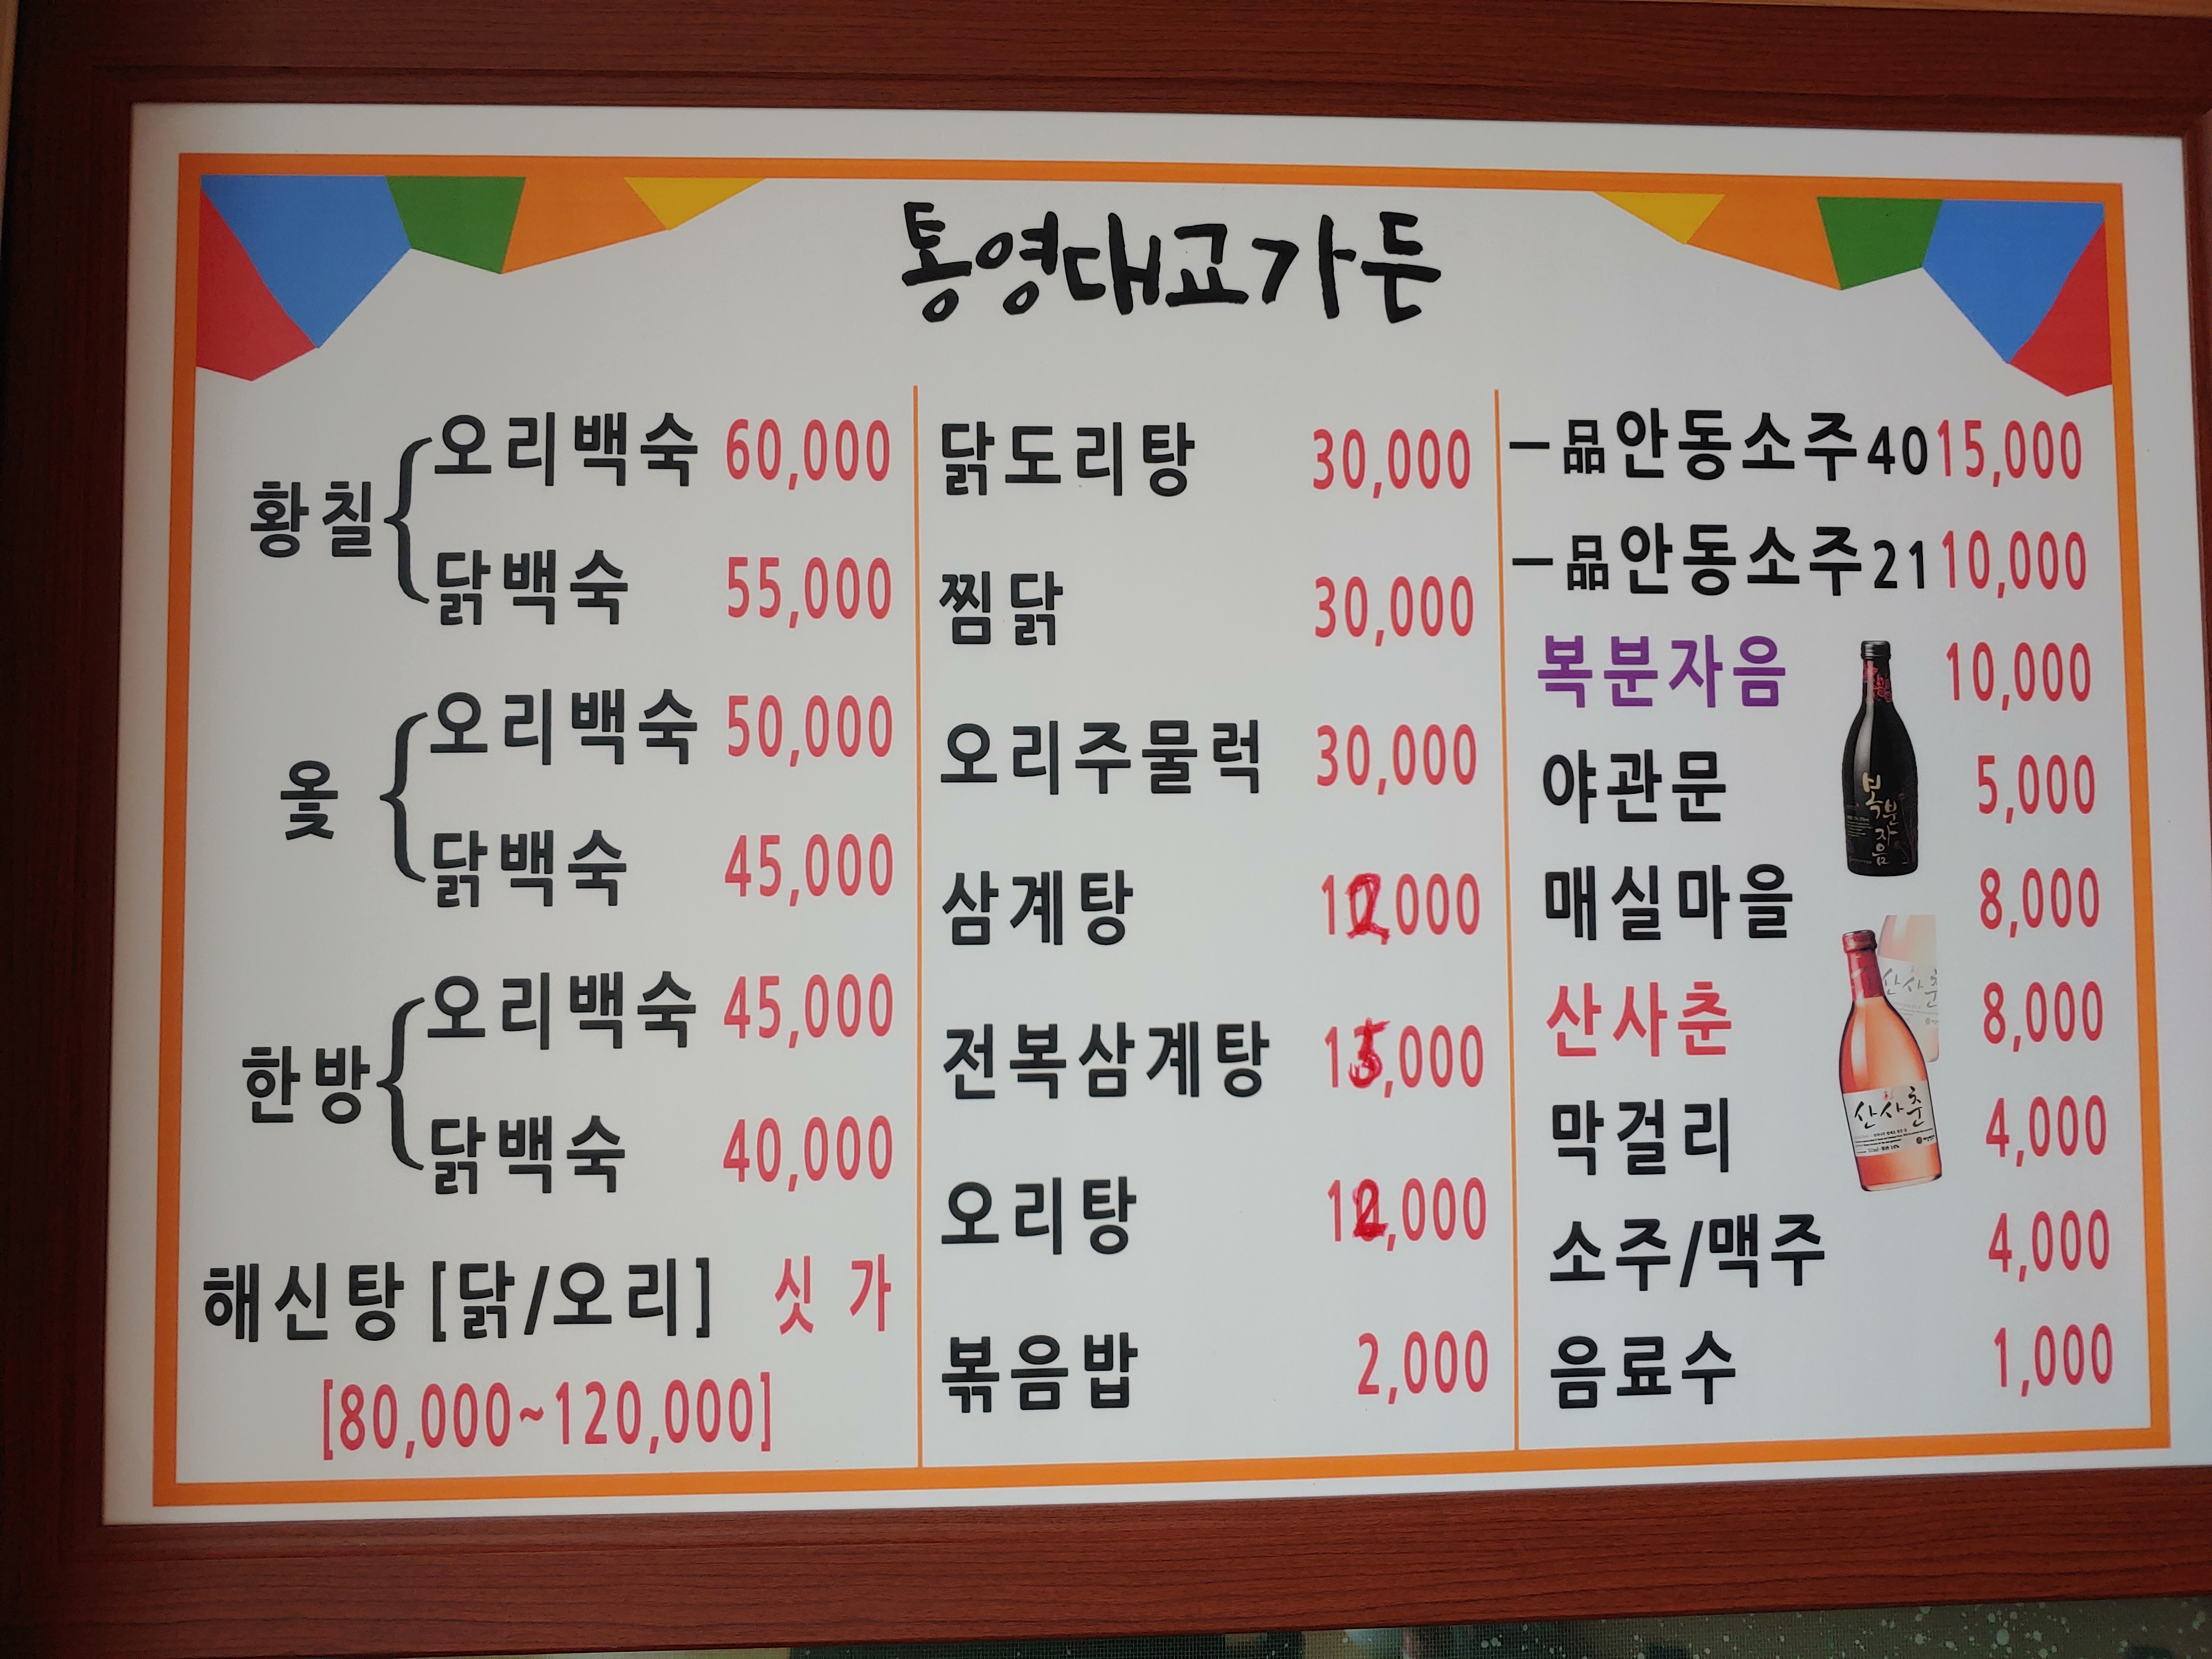 통영대교가든
황칠
오리백숙 60,000
닭백숙 55,000
옻
오리백숙 50,000
닭백숙 45,000
한방
오리백숙 45,000
닭백숙 40,000
해신탕 [닭/오리] 싯가
[80,000~120,000]
닭도리탕 30,000
찜닭 30,000
오리주물럭 30,000
삼계탕 12,000
전복삼계탕 15,000
오리탕 12,000
볶음밥 2,000
一品안동소주40 15,000
一品안동소주21 10,000
복분자음 10,000
야관문 5,000
매실마을 8,000
산사춘 8,000
막걸리 4,000
소주/맥주 4,000
음료수 1,000
복분자음
산사춘
산사춘